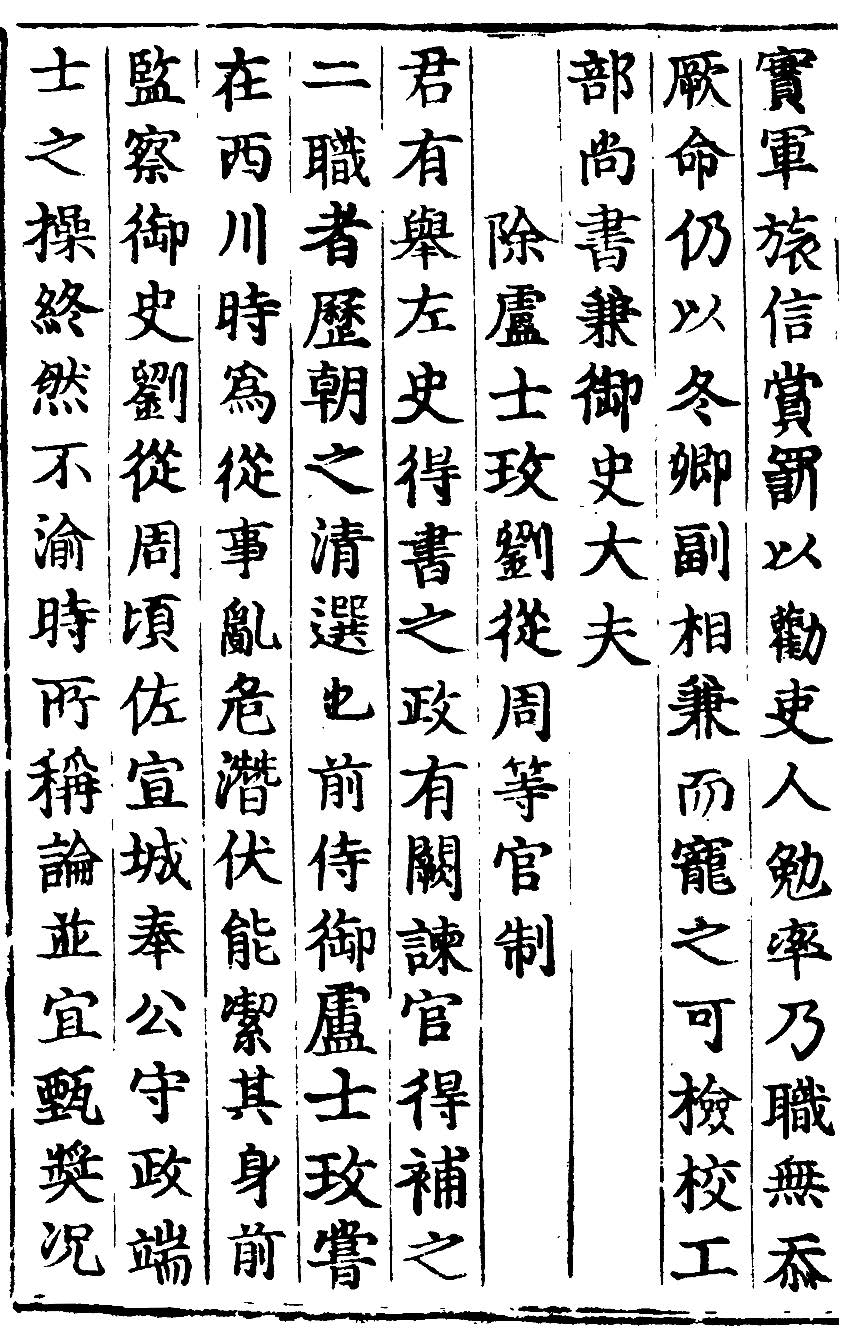 實軍旅信賞罰以勸吏人勉率乃職無忝
厥命仍以冬卿副相兼而寵之可檢校工
部尚書兼御史大夫
除盧士玫劉從周等官制
君有舉左史得書之政有闕諫官得補之
二職者歷朝之清選也前侍御盧士玫嘗
在西川時爲從事亂危潛伏能潔其身前
監察御史劉從周頃佐宣城奉公守政端
士之操終然不渝時所稱論並宜甄奬况